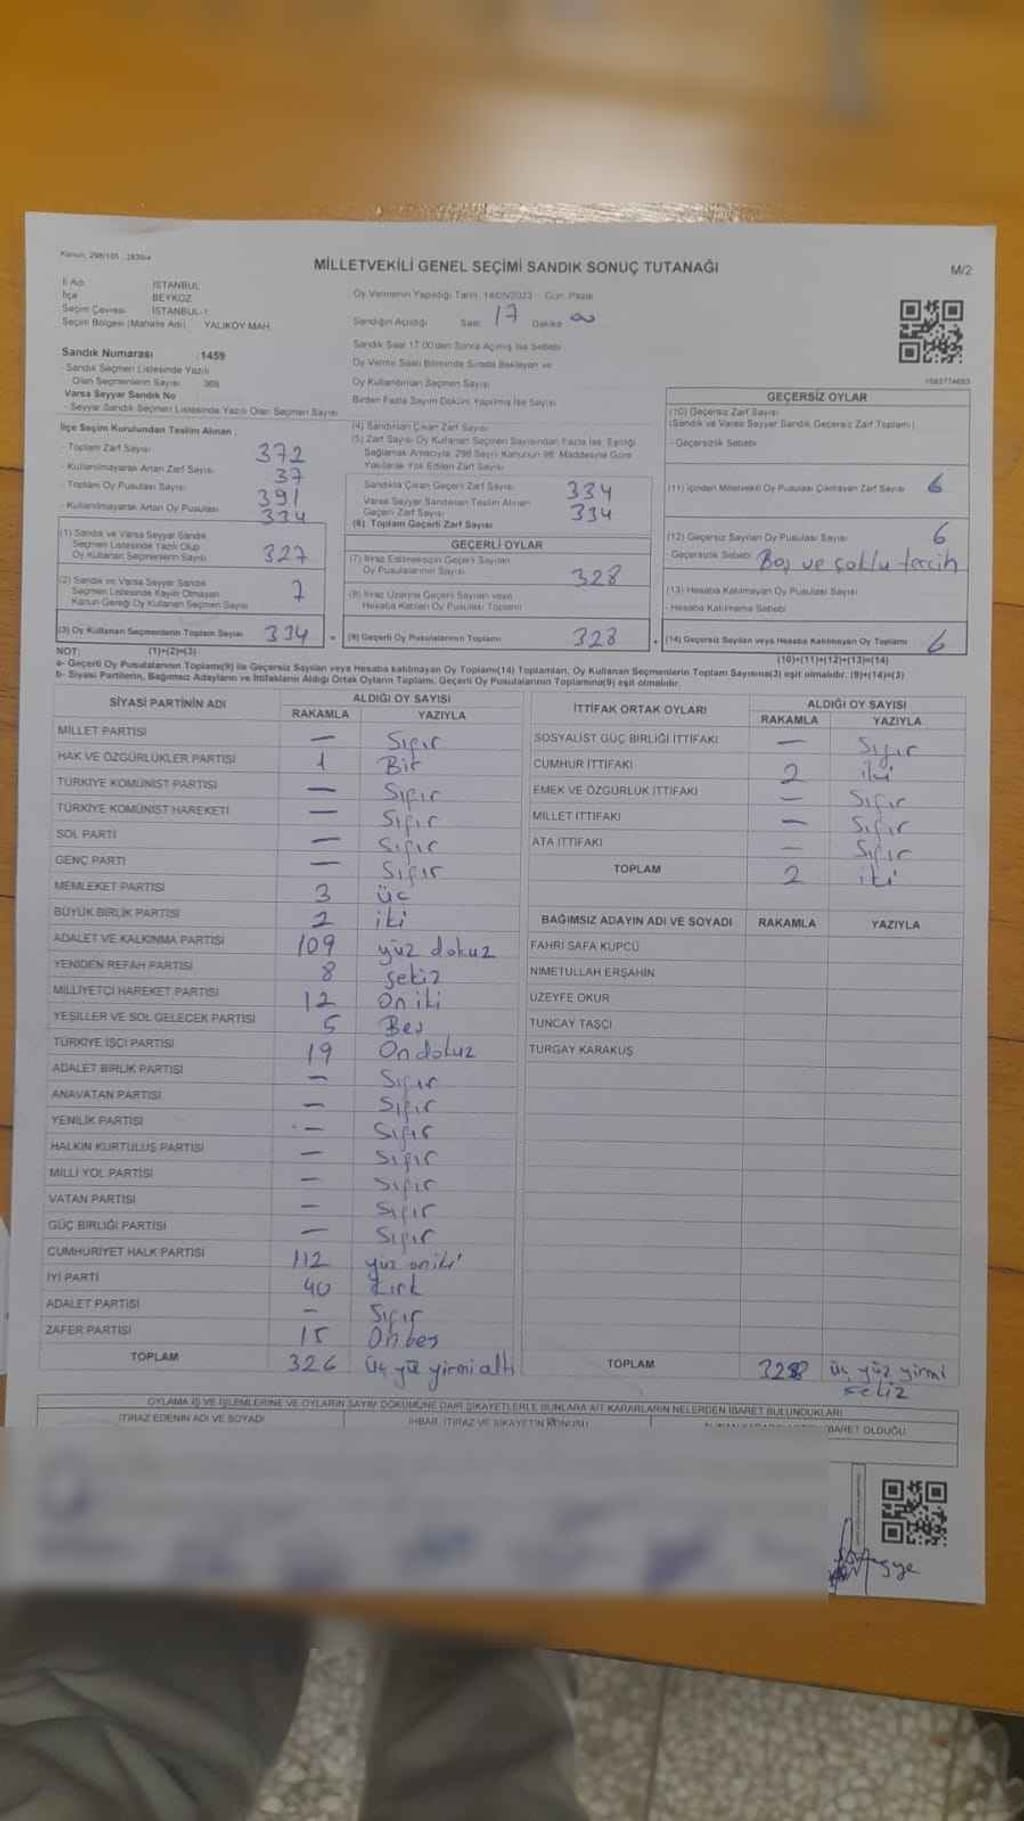 MİLLETVEKİLİ GENEL SEÇİMİ SANDIK SONUÇ TUTANAĞI
M/2
İl Adı İSTANBUL
İlçe BEYKOZ
Seçim Çevresi İSTANBUL-1
Seçim Bölgesi (Mahalle Adı) YALIKÖY MAH.
Oy Vermenin Yapıldığı Tarih: 14/05/2023 Gün: Pazar
Sandığın Açıldığı Saat 17 Dakika
Sandık Numarası 1459
Sandık Seçmen Listesinde Yazılı
Olan Seçmenlerin Sayısı 369
Varsa Seyyar Sandık No
- Seyyar Sandık Seçmen Listesinde Yazılı Olan Seçmen Sayısı
Sandık Saat 17.00'den Sonra Açılmış İse Sebebi
Oy Verme Saati Bitiminde Sırada Bekleyen ve
Oy Kullandırılan Seçmen Sayısı
Birden Fazla Sayım Döküm Yapılmış İse Sayısı
İlçe Seçim Kurulundan Teslim Alınan :
- Toplam Zarf Sayısı 372
- Kullanılmayarak Artan Zarf Sayısı 37
- Toplam Oy Pusulası Sayısı 391
- Kullanılmayarak Artan Oy Pusulası 334
(1) Sandık ve Varsa Seyyar Sandık
Seçmen Listesinde Yazılı Olup
Oy Kullanan Seçmenlerin Sayısı 327
(2) Sandık ve Varsa Seyyar Sandık
Seçmen Listesinde Kayıtlı Olmayan
Kanun Gereği Oy Kullanan Seçmen Sayısı 7
(3) Oy Kullanan Seçmenlerin Toplam Sayısı 334
(4) Sandıktan Çıkan Zarf Sayısı
(5) Zarf Sayısı Oy Kullanan Seçmen Sayısından Fazla İse, Eşitliği
Sağlamak Amacıyla, 298 Sayılı Kanunun 98. Maddesine Göre
Yakılarak Yok Edilen Zarf Sayısı
Sandıkta Çıkan Geçerli Zarf Sayısı 334
Varsa Seyyar Sandıktan Teslim Alınan
Geçerli Zarf Sayısı 334
(6) Toplam Geçerli Zarf Sayısı
GEÇERLİ OYLAR
(7) İtiraz Edilmeksizin Geçerli Sayılan
Oy Pusulalarının Sayısı 328
(8) İtiraz Üzerine Geçerli Sayılan veya
Hesaba Katılan Oy Pusulası Toplamı
(9) Geçerli Oy Pusulalarının Toplamı 328
GEÇERSİZ OYLAR
(10) Geçersiz Zarf Sayısı
(Sandık ve Varsa Seyyar Sandık Geçersiz Zarf Toplamı)
- Geçersizlik Sebebi
(11) İçinden Milletvekili Oy Pusulası Çıkmayan Zarf Sayısı 6
(12) Geçersiz Sayılan Oy Pusulası Sayısı 6
Geçersizlik Sebebi Boş ve çoklu tercih
(13) Hesaba Katılmayan Oy Pusulası Sayısı
- Hesaba Katılmama Sebebi
(14) Geçersiz Sayılan veya Hesaba Katılmayan Oy Toplamı 6
NOT: (1)+(2)=(3)
(10)+(11)+(12)+(13)=(14)
a- Geçerli Oy Pusulalarının Toplamı(9) ile Geçersiz Sayılan veya Hesaba katılmayan Oy Toplamı(14) Toplamları, Oy Kullanan Seçmenlerin Toplam Sayısına(3) eşit olmalıdır. (9)+(14)=(3)
b- Siyasi Partilerin, Bağımsız Adayların ve İttifakların Aldığı Ortak Oyların Toplamı, Geçerli Oy Pusulalarının Toplamına(9) eşit olmalıdır.
SİYASİ PARTİNİN ADI ALDIĞI OY SAYISI
RAKAMLA YAZIYLA
MİLLET PARTİSİ — Sıfır
HAK VE ÖZGÜRLÜKLER PARTİSİ 1 Bir
TÜRKİYE KOMÜNİST PARTİSİ — Sıfır
TÜRKİYE KOMÜNİST HAREKETİ — Sıfır
SOL PARTİ — Sıfır
GENÇ PARTİ — Sıfır
MEMLEKET PARTİSİ 3 üç
BÜYÜK BİRLİK PARTİSİ 2 iki
ADALET VE KALKINMA PARTİSİ 109 yüz dokuz
YENİDEN REFAH PARTİSİ 8 sekiz
MİLLİYETÇİ HAREKET PARTİSİ 12 On iki
YEŞİLLER VE SOL GELECEK PARTİSİ 5 Beş
TÜRKİYE İŞÇİ PARTİSİ 19 On dokuz
ADALET BİRLİK PARTİSİ — Sıfır
ANAVATAN PARTİSİ — Sıfır
YENİLİK PARTİSİ — Sıfır
HALKIN KURTULUŞ PARTİSİ — Sıfır
MİLLİ YOL PARTİSİ — Sıfır
VATAN PARTİSİ — Sıfır
GÜÇ BİRLİĞİ PARTİSİ — Sıfır
CUMHURİYET HALK PARTİSİ 112 yüz oniki
İYİ PARTİ 40 kırk
ADALET PARTİSİ — Sıfır
ZAFER PARTİSİ 15 On beş
TOPLAM 326 üç yüz yirmi altı
İTTİFAK ORTAK OYLARI ALDIĞI OY SAYISI
RAKAMLA YAZIYLA
SOSYALİST GÜÇ BİRLİĞİ İTTİFAKI — Sıfır
CUMHUR İTTİFAKI 2 iki
EMEK VE ÖZGÜRLÜK İTTİFAKI — Sıfır
MİLLET İTTİFAKI — Sıfır
ATA İTTİFAKI — Sıfır
TOPLAM 2 iki
BAĞIMSIZ ADAYIN ADI VE SOYADI RAKAMLA YAZIYLA
FAHRİ SAFA KÜPCÜ
NİMETULLAH ERŞAHİN
UZEYFE OKUR
TUNCAY TAŞÇI
TURGAY KARAKUŞ
TOPLAM 328 üç yüz yirmi
sekiz
OYLAMA İŞ VE İŞLEMLERİNE VE OYLARIN SAYIM DÖKÜMÜNE DAİR ŞİKAYETLERLE BUNLARA AİT KARARLARIN NELERDEN İBARET BULUNDUKLARI
İTİRAZ EDENİN ADI VE SOYADI İHBAR, İTİRAZ VE ŞİKAYETİN KONUSU İBARET OLDUĞU